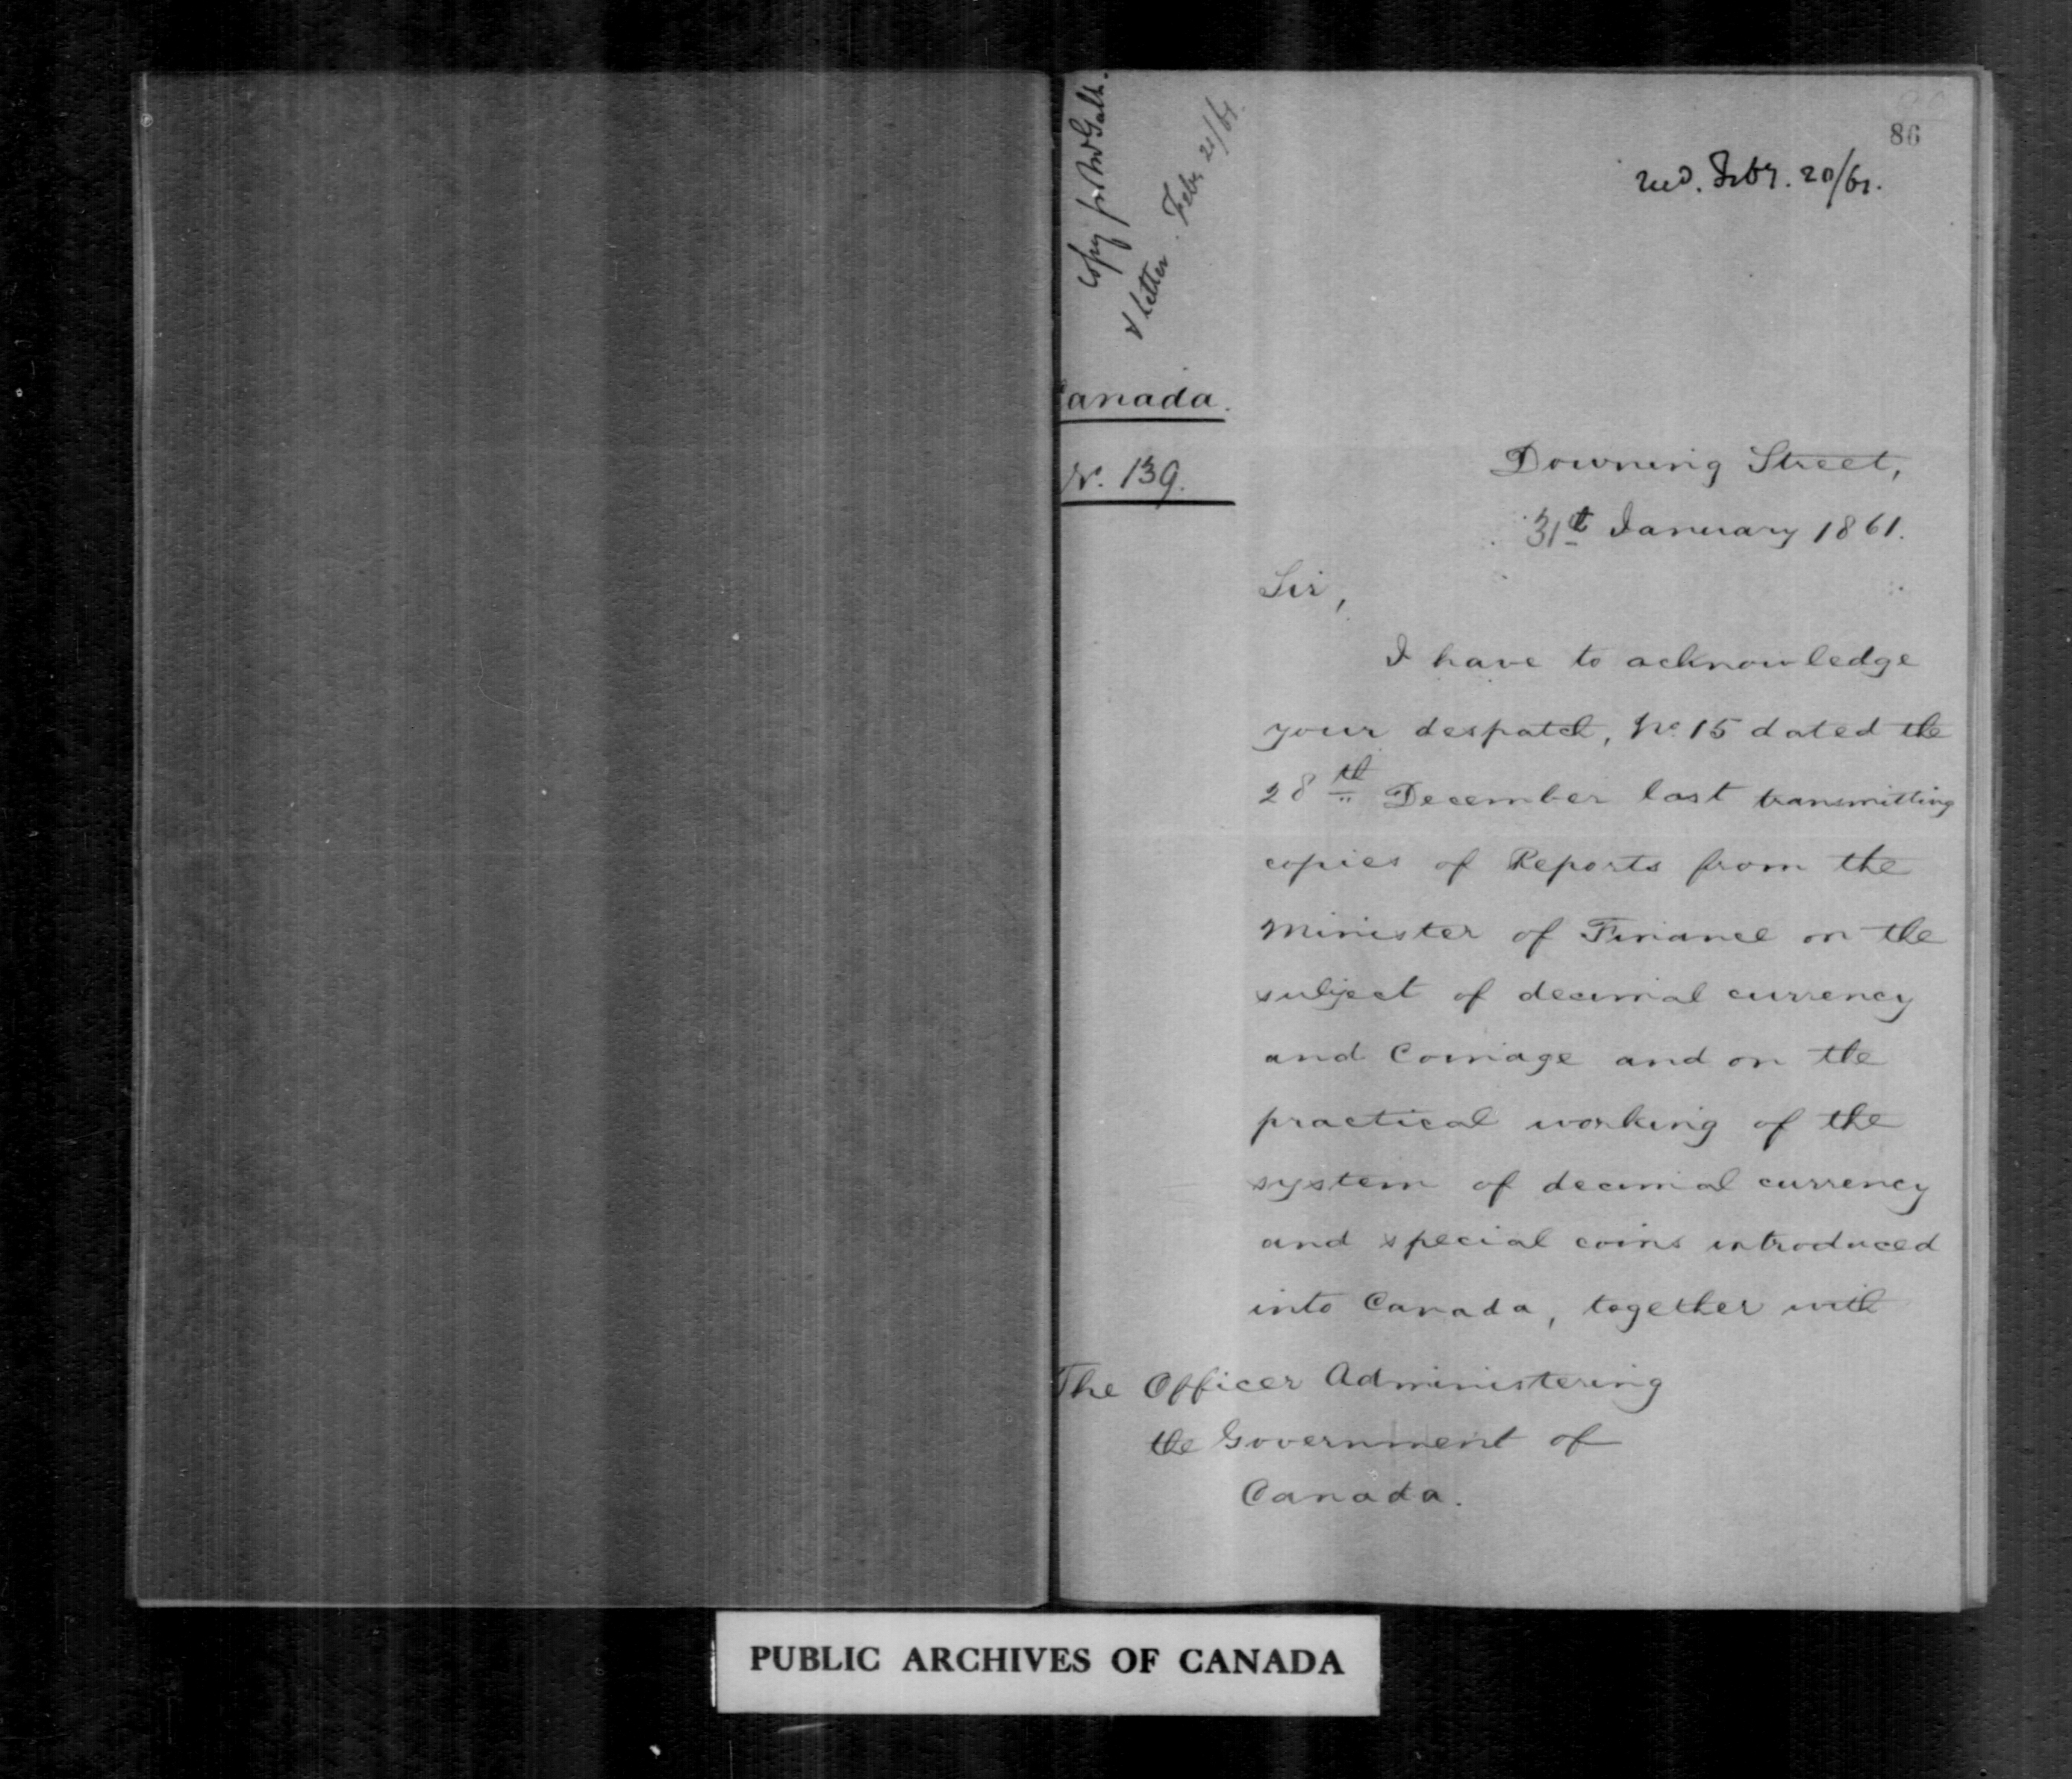 86
Recd. Feby. 20/61.
Copy for Mr Galt.
& letter. Feby 21/61.
anada.
N. 139.
Downing Street,
31st January 1861.
Sir,
I have to acknowledge
your despatch, No. 15 dated the
28th December last transmitting
copies of Reports from the
Minister of Finance on the
subject of decimal currency
and Coinage and on the
practical working of the
system of decimal currency
and special coins introduced
into Canada, together with
The Officer Administering
the Government of
Canada.
PUBLIC ARCHIVES OF CANADA